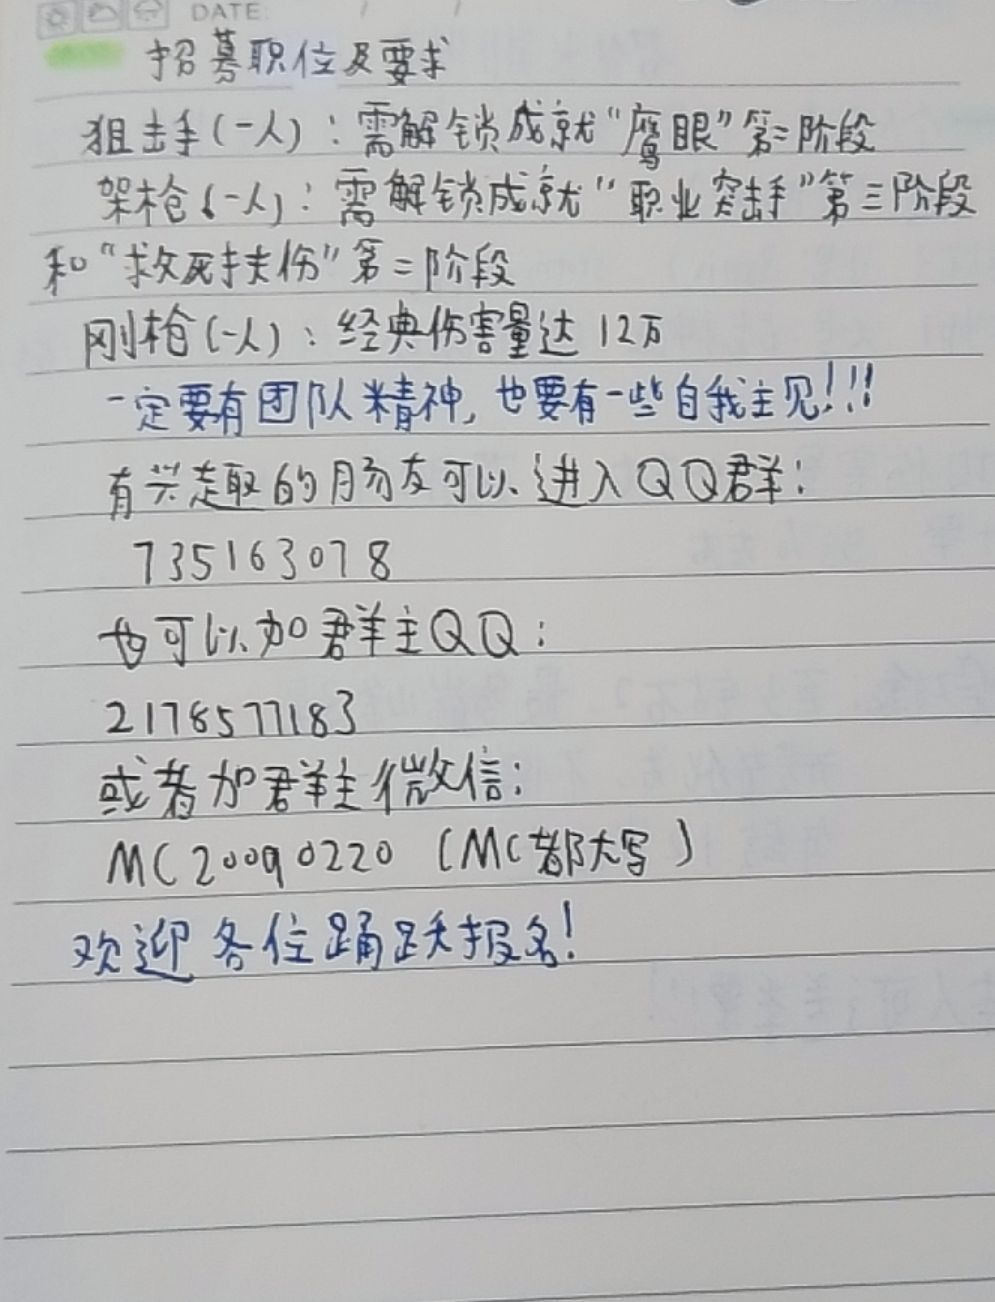 DATE: / /
招募职位及要求
狙击手(一人)：需解锁成就“鹰眼”第三阶段
架枪(一人)：需解锁成就“职业突击手”第三阶段
和“救死扶伤”第二阶段
刚枪(一人)：经典伤害量达12万
一定要有团队精神,也要有一些自我主见!!!
有兴趣的朋友可以进入QQ群：
735163078
也可以加群主QQ：
2178577183
或者加群主微信：
MC20090220 (MC都大写)
欢迎各位踊跃报名!